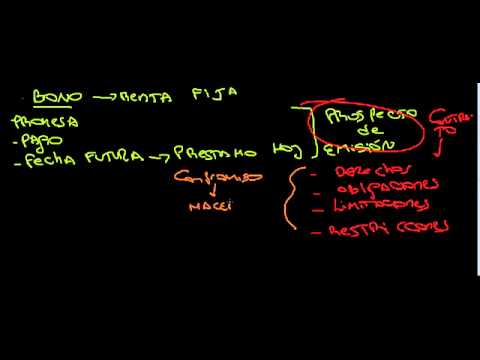 BONO → RENTA FIJA
PROMESA
- PAGO
- FECHA FUTURA → PRESTAMO HOY
PROSPECTO
de
EMISIÓN
- DERECHOS
- OBLIGACIONES
- LIMITACIONES
- RESTRICCIONES
Compromiso
HACER